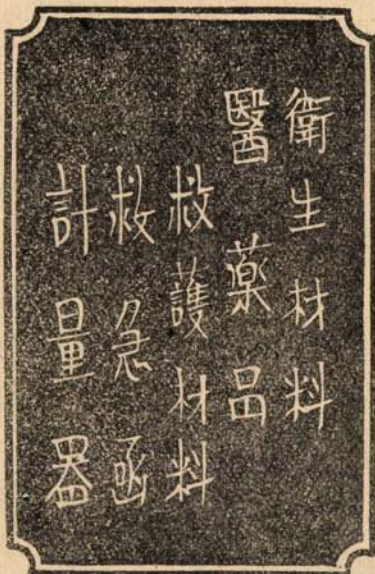 衛生材料
醫藥品
救護材料
救急函
計量器